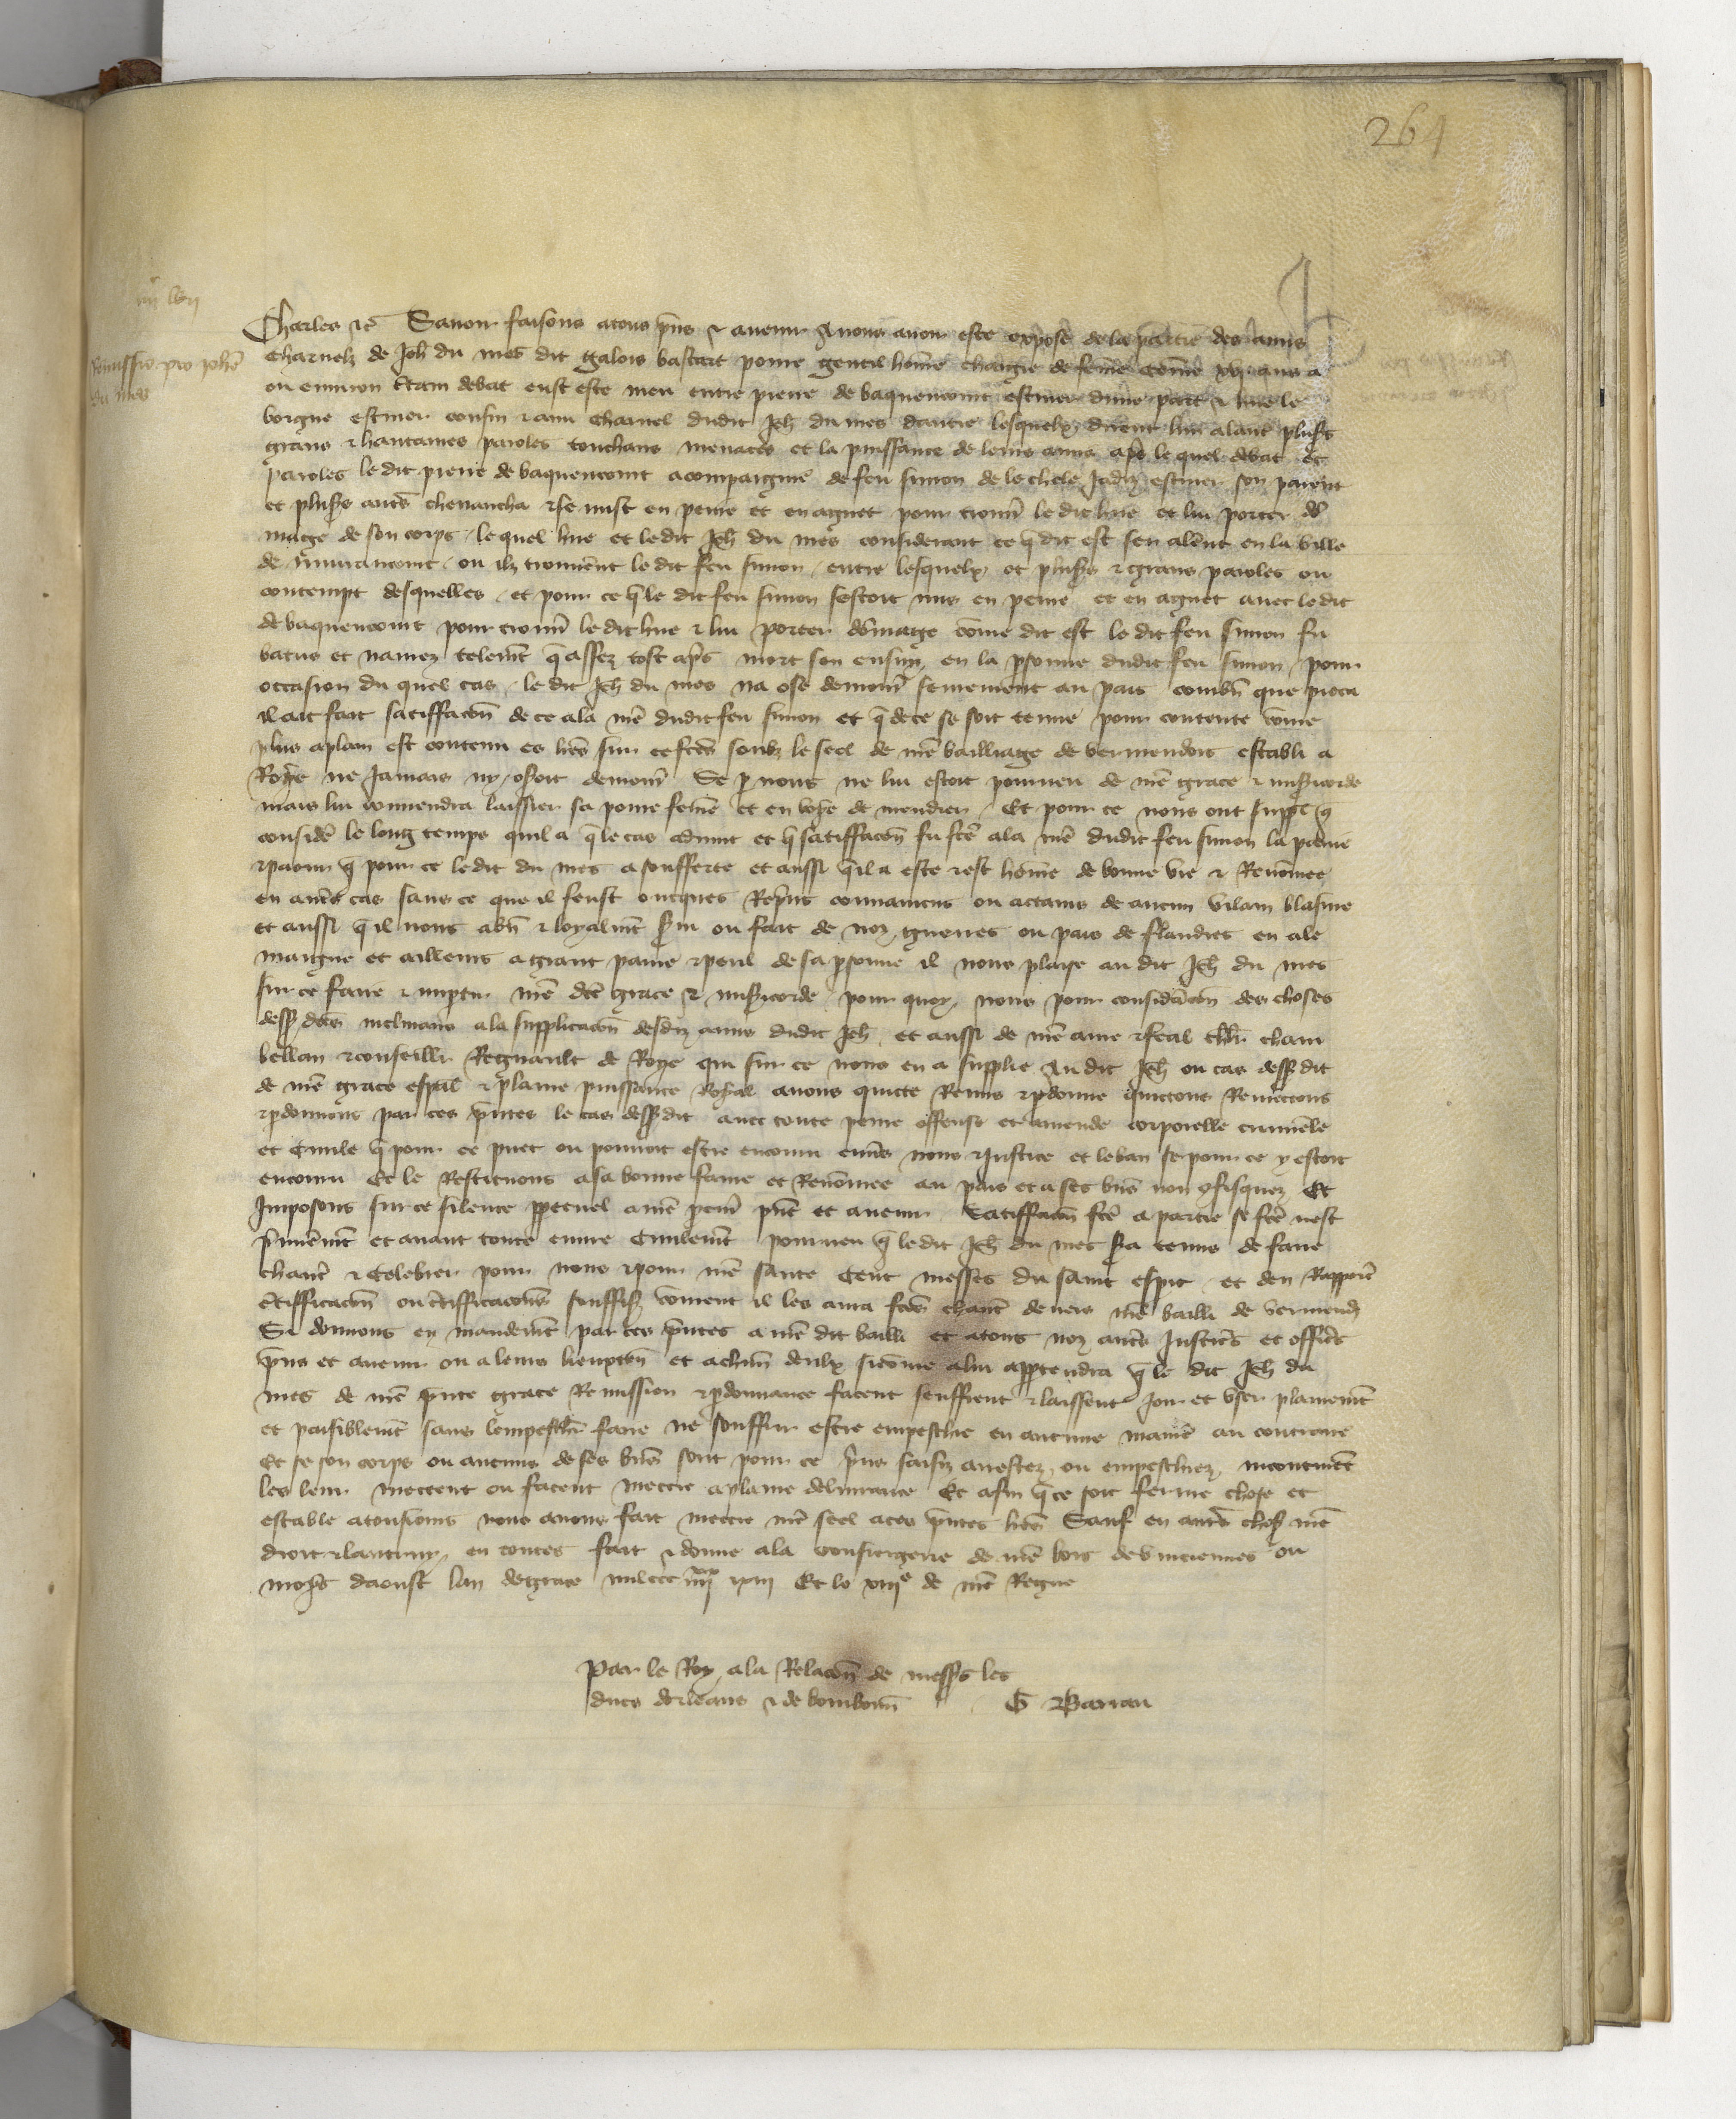 264
iiii lvii
Remissio pro Johe
du mes
Charles etc Savoir faisons a tous pns et avenir A nous avoir este expose de la partie des amis
charnelz de Jeh du mes dit galois bastart povre gentil home chargie de feme come xvi ans a
ou environ certain debat eust este meu entre pierre de baquencourt escuier dune part et hue le
borgne escuier cousin et ami charnel dudit Jeh du mes dautre lesquelx eurent plusrs
grans et hautaines paroles touchans menaces et la puissance de leurs amis apres le quel debat et
paroles le dit pierre de baquencourt acompaigne de feu simon de le chele Jadiz escuier son parent
et plusrs autres chevaucha et se mist en peine et en aguet pour trouver le dit hue et lui porter do
mage de son corps le quel hue et le dit Jeh du mes considerant ce q dit est sen alerent en la ville
de ou ilz trouverent le dit feu simon entre lesquelx ot plusrs et grans paroles ou
contempt desquelles et pour ce q le dit feu simon sestoit mis en peine et en aguet avec le dit
de baquencourt pour trouver le dit hue et lui porter domage come dit est le dit feu simon fu
batus et navrez telemt q assez tost apres mort sen ensuy en la psonne dudit feu simon pour
occasion du quel cas le dit Jeh du mes na ose demourer seurement au pais combn que pieca
il ait fait satiffacon de ce a la me dudit feu simon et q de ce se soit tenue pour contente come
plus a plain est contenu es lres sur ce fces soubz le seel de nre bailliage de vermendois establi a
Roye ne Jamais ny oseroit demourer Se p nous ne lui estoit pourveu de nre grace et misericorde
mais lui convendra laissier sa povre feme et en voye de mendier Et pour ce nous ont supplie q
consider le long temps quil a q le cas advint et q satiffacon fu fce a la me dudit feu simon la peine
et paour q pour ce le dit du mes a soufferte et aussi quil a este et est home de bonne vie et Renomee
en autres cas sans ce que il feust oncques Repris convaincus ou actains de aucun vilain blasme
et aussi q il nous a bn et loyalmt servi ou fait de noz guerres ou pais de flandres en ale
maigne et ailleurs a grant paine et peril de sa psonne il nous plaise au dit Jeh du mes
sur ce faire et impartir nre dce grace et misericorde pour quoy nous pour consideracon des choses
dessus dces inclinans a la supplicacon desdiz amis dudit Jeh et aussi de nre ame et feal chlr cham
bellan et conseiller Regnault de Roye qui sur ce nous en a supplie Au dit Jeh ou cas dessus dit
de nre grace espal et plaine puissance Royal avons quicte Remis et pdonne quictons Remectons
et pdonnons par ces pntes le cas dessus dit avec toute peine offense et amende corporelle criminele
et civile q pour ce puet ou pourroit estre encouru envers nous et Justice et le ban se pour ce y estoit
encouru Et le Restituons a sa bonne fame et Renomee au pais et a ses biens non ofisquez Et
Imposons sur ce silence ppetuel a nre pcur pnt et avenir Satiffacon fce a partie se fce nest
premieremt et avant toute euvre Civilemt pourveu q le dit Jeh du mes sera tenus de faire
chanter et celebrer pour nous et pour nre sante Cent messes du saint espit et den Rapporter
certifficacon ou certifficacons souffis coment il les aura fces chanter devers nre bailli de vermend
Si donnons en mandemt par ces pntes a nre dit bailli et a tous noz autres Justiciers et officiers
pns et avenir ou a leurs lieuxten et a chun deulx sicome a lui apptendra q le dit Jeh du
mes de nre pnte grace Remission et pdonnance facent seuffrent et laissent Joir et user plainemt
et paisiblemt sans lempeschr faire ne souffrir estre empeschie en aucune maniere au contraire
Et se son corps ou aucuns de ses biens sont pour ce pris saisiz arrestez ou empeschiez incontinent
les leur mectent ou facent mectre a plaine delivrance Et afin q ce soit ferme chose et
estable a tousjours nous avons fait mectre nre seel a ces pntes lres Sauf en autres choses nre
droit et lautruy en toutes fait et donne a la conciergerie de nre bois de vinciennes ou
moys daoust lan de grace mil ccc iiiixx xiii Et le xiiie de nre Regne
Par le Roy a la Relacon de messrs les
ducs dorleans et de bourbon G Barrau